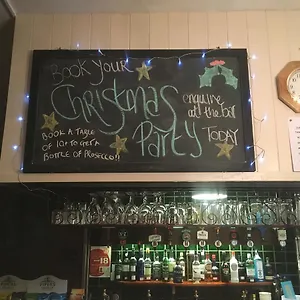 BOOK YOUR
Christmas
Party
enquire
at the bar
TODAY
BOOK A TABLE
OF 10+ TO GET A
BOTTLE OF PROSECCO!!
18